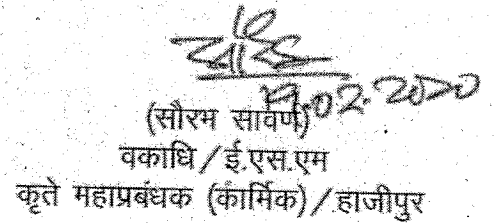 19.02.2020
(सौरभ सावर्ण)
वकाधि/ई.एस.एम
कृते महाप्रबंधक (कार्मिक)/हाजीपुर